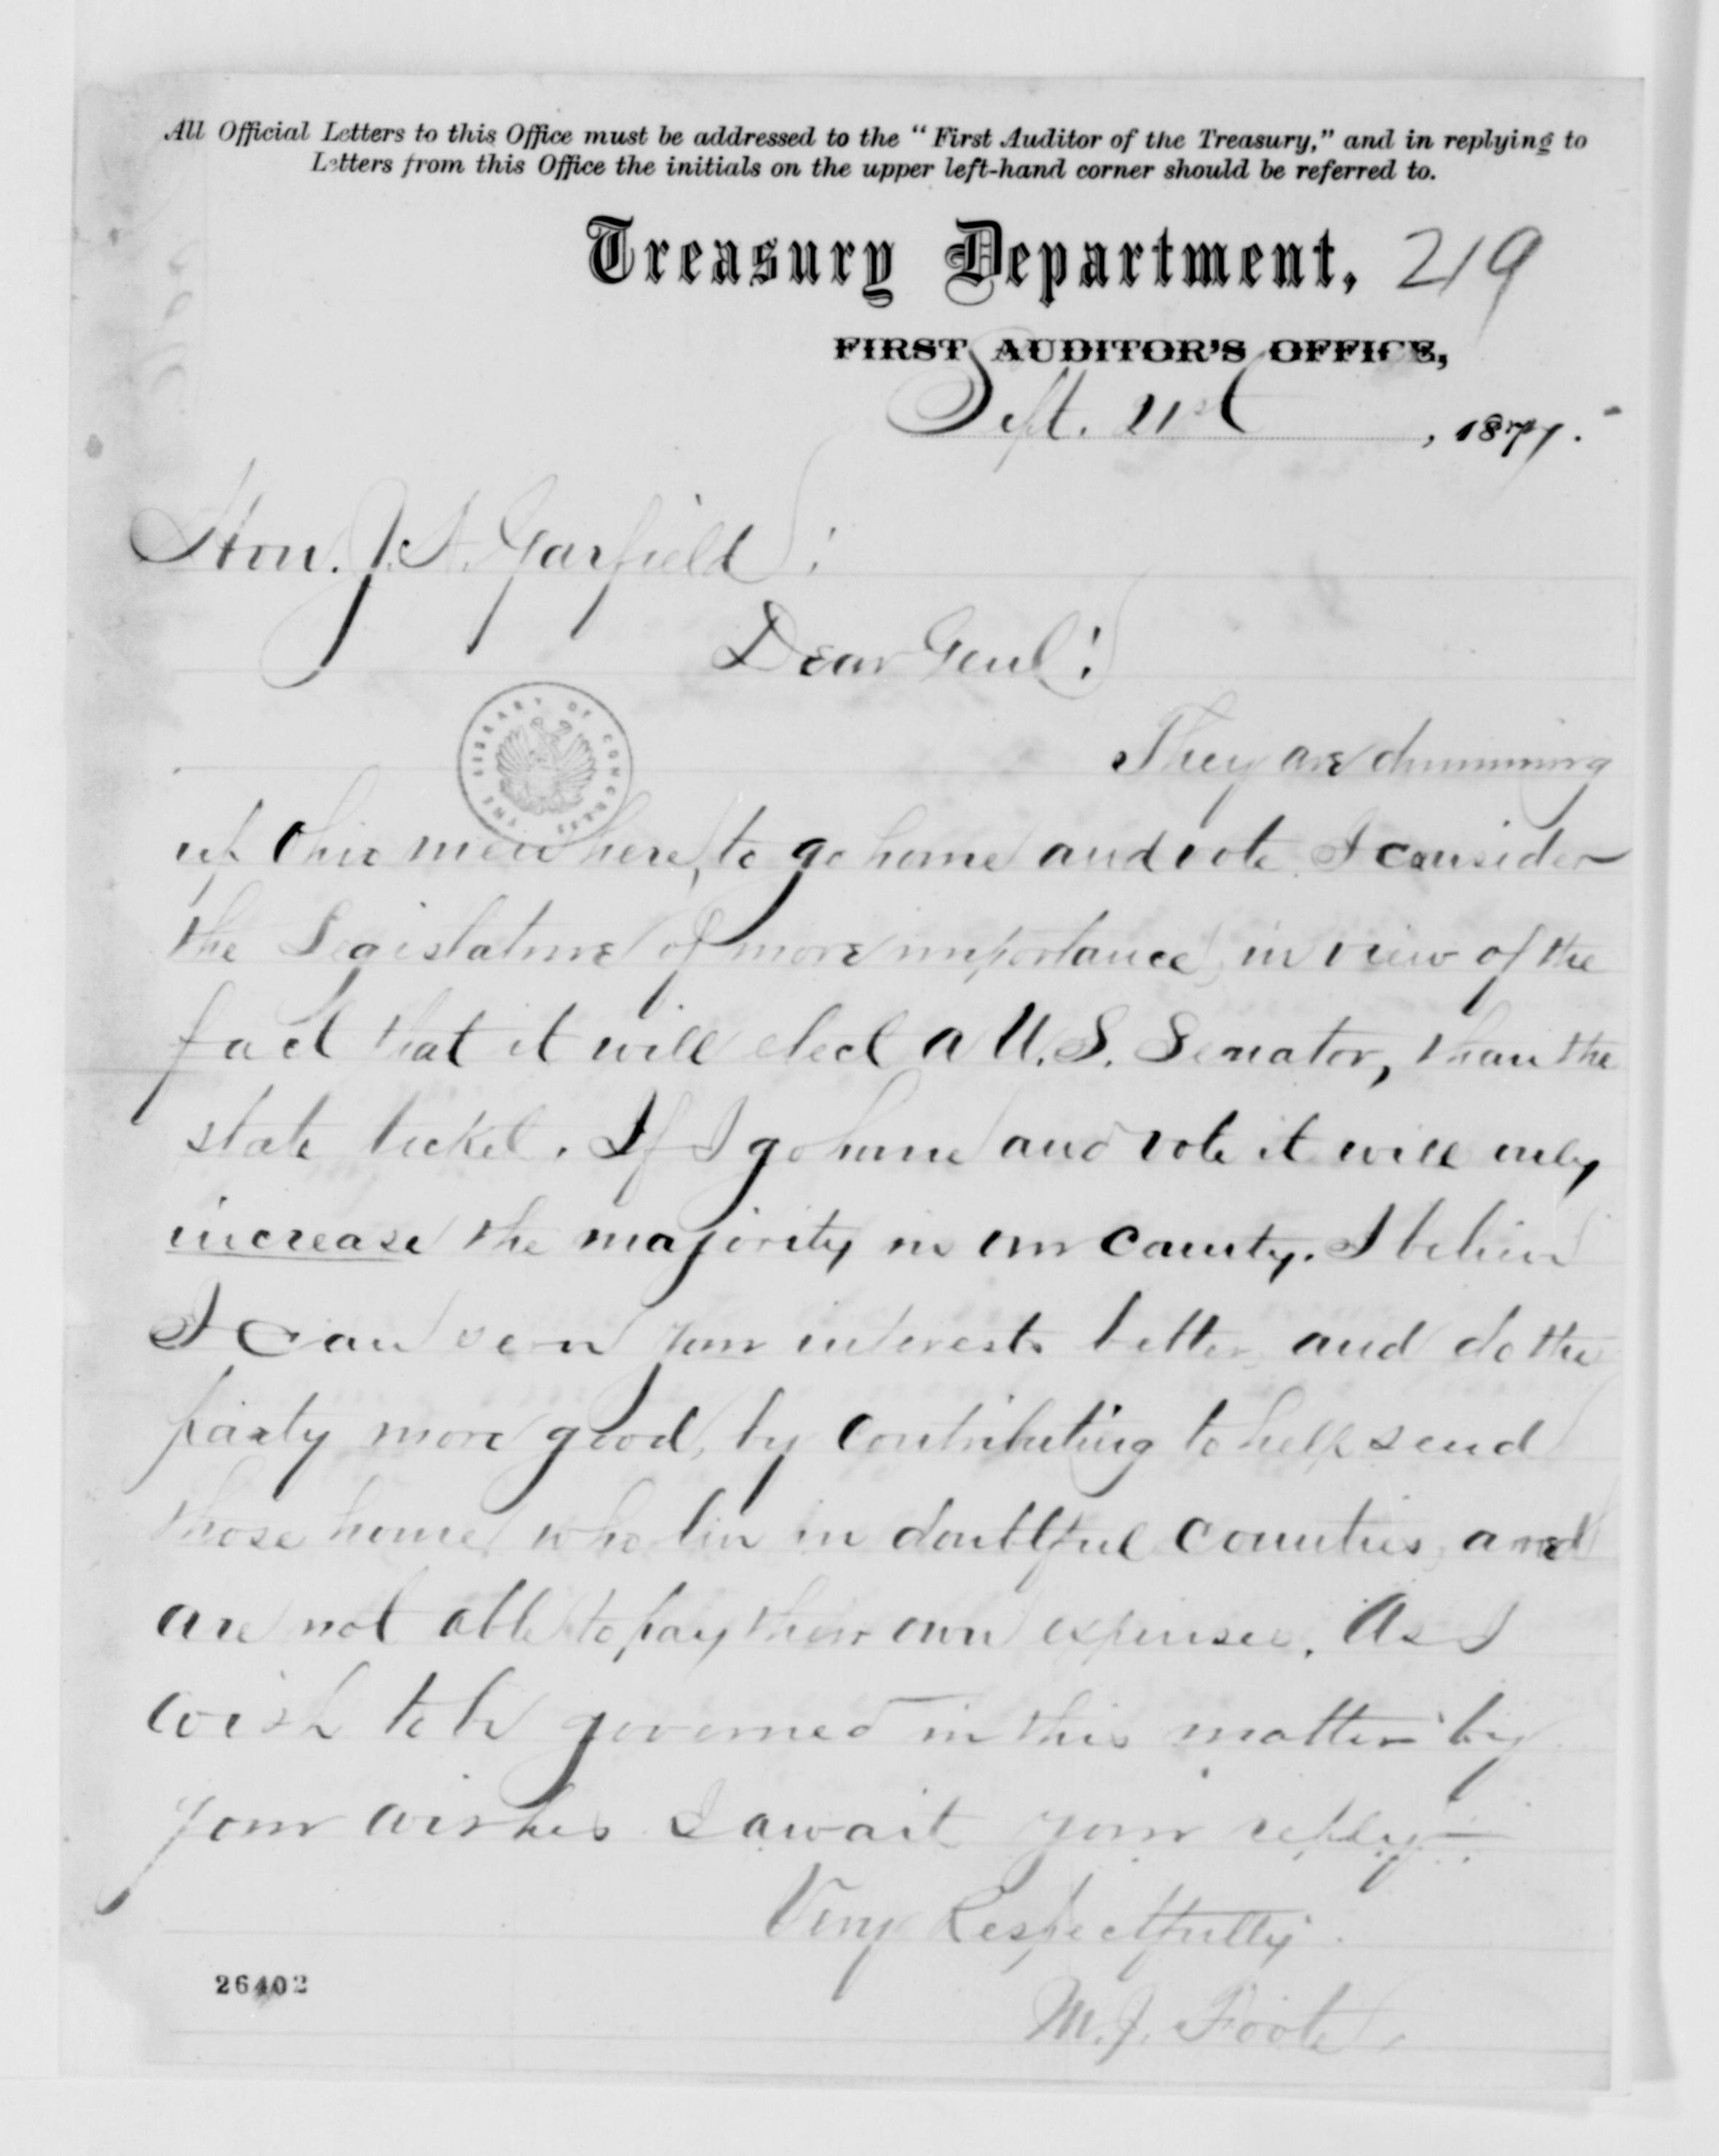 All Official Letters to this Office must be addressed to the "First Auditor of the Treasury," and in replying to
Letters from this Office the initials on the upper left-hand corner should be referred to.
Treasury Department, 219
FIRST AUDITOR'S OFFICE,
Sept. 21st, 1877.
Hon. J. A. Garfield:
Dear Genl:
THE LIBRARY OF CONGRESS
They are drumming
up Ohio men here, to go home and vote. I consider
the Legislature of more importance, in view of the
fact that it will elect a U.S. Senator, than the
state ticket. If I go home and vote it will only
increase the majority in our county. I believe
I can serve your interests better, and do the
party more good, by contributing to help send
those home who live in doubtful counties, and
are not able to pay their own expenses. As I
wish to be governed in this matter by
your wishes I await your reply—
Very Respectfully
M. J. Foote.
26402